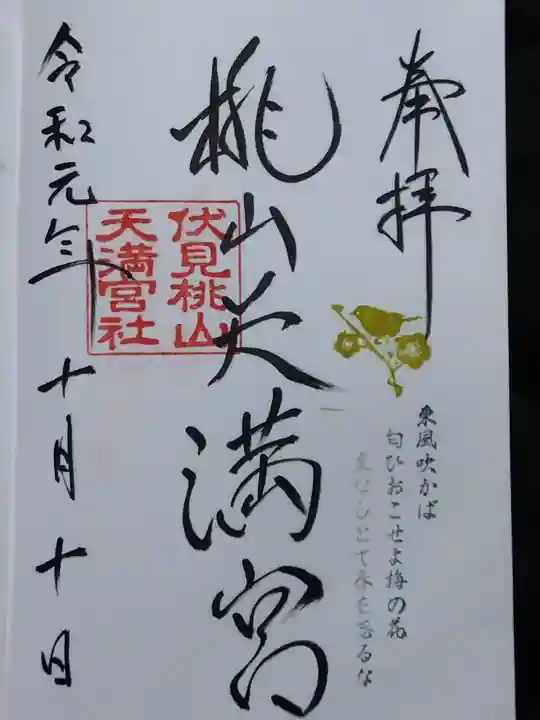 奉拝
東風吹かば
匂ひおこせよ梅の花
主なしとて春を忘るな
桃山天満宮
伏見桃山
天満宮社
令和元年 十月 十日